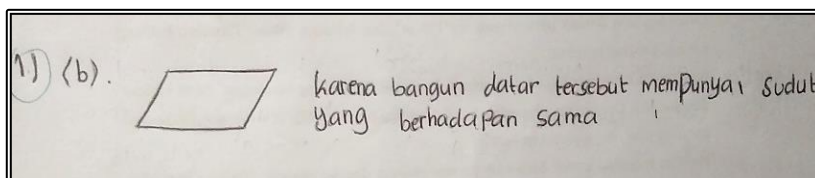 1.) (b). karena bangun datar tersebut mempunyai sudut
yang berhadapan sama